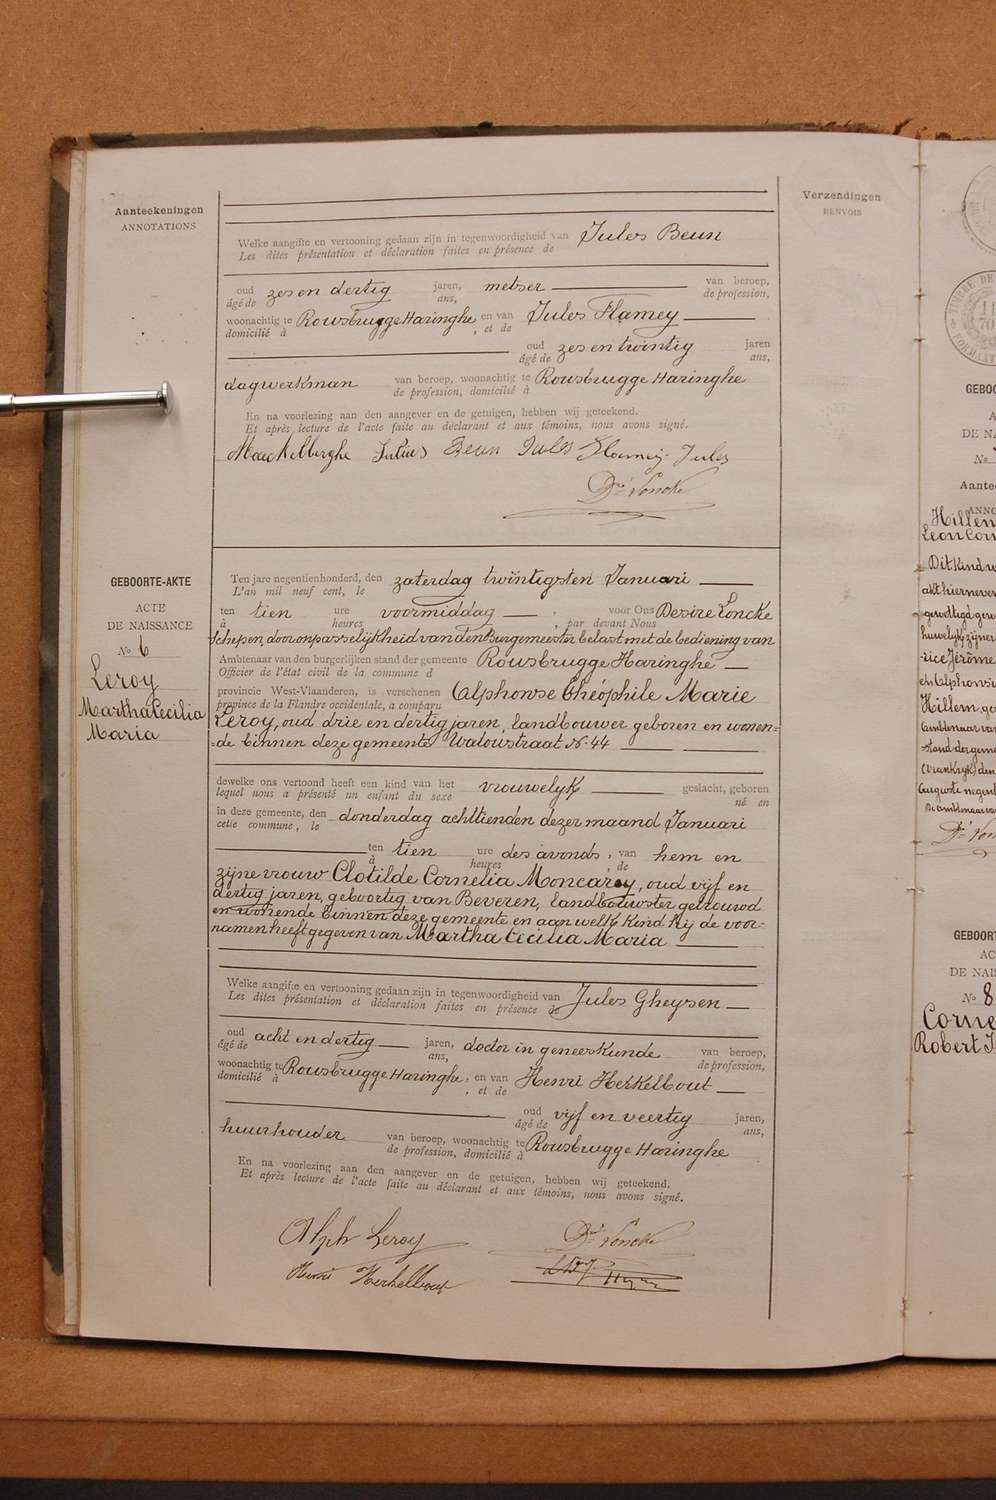 Aanteekeningen
ANNOTATIONS
Verzendingen
RENVOIS
Welke aangifte en vertooning gedaan zijn in tegenwoordigheid van Jules Beun
Les dites présentation et déclaration faites en présence de
oud zes en dertig jaren, metser van beroep,
âgé de ans, de profession,
woonachtig te Rousbrugge Haringhe en van Jules Flamey
domicilié à , et de
oud zes en twintig jaren
âgé de ans,
dagwerkman van beroep, woonachtig te Rousbrugge Haringhe
de profession, domicilié à
En na voorlezing aan den aangever en de getuigen, hebben wij geteekend.
Et après lecture de l'acte faite au déclarant et aux témoins, nous avons signé.
Maeckelberghe Julius Beun Jules Flamey Jules
Dré Loncke
GEBOORTE-AKTE
ACTE
DE NAISSANCE
No 6
Leroy
Martha Cecilia
Maria
Ten jare negentienhonderd, den zaterdag twintigsten Januari
L'an mil neuf cent, le
ten tien ure voormiddag , voor Ons Desiré Loncke
à heures , par devant Nous
Schepen, door onpasselijkheid van den Burgemeester belast met de bediening van
Ambtenaar van den burgerlijken stand der gemeente Rousbrugge Haringhe
Officier de l'état civil de la commune d
provincie West-Vlaanderen, is verschenen Alphonse Théophile Marie
province de la Flandre occidentale, a comparu
Leroy, oud drie en dertig jaren, landbouwer geboren en wonen=
=de binnen deze gemeente Watoustraat No 44
dewelke ons vertoond heeft een kind van het vrouwelyk geslacht, geboren
lequel nous a présenté un enfant du sexe né en
in deze gemeente, den donderdag achttienden dezer maand Januari
cette commune, le
ten tien ure des avonds, van hem en
à heures , de
zijne vrouw Clotilde Cornelia Moncarey, oud vijf en
dertig jaren, geboortig van Beveren, landbouwster getrouwd
en wonende binnen deze gemeente en aan welk kind hij de voor-
namen heeft gegeven van Martha Cecilia Maria
Welke aangifte en vertooning gedaan zijn in tegenwoordigheid van Jules Gheysen
Les dites présentation et déclaration faites en présence de
oud acht en dertig jaren, doctor in geneeskunde van beroep,
âgé de ans, de profession,
woonachtig te Rousbrugge Haringhe, en van Henri Herkelbout
domicilié à , et de
oud vijf en veertig jaren,
âgé de ans,
huurhouder van beroep, woonachtig te Rousbrugge Haringhe
de profession, domicilié à
En na voorlezing aan den aangever en de getuigen, hebben wij geteekend.
Et après lecture de l'acte faite au déclarant et aux témoins, nous avons signé.
Alph Leroy Dré Loncke
Henri Herkelbout
TIMBRE DE
GEBOO
A
DE NA
No
Aante
ANNO
Hillem
Leon Corn
Dit kind w
akt hierneven
gewettigd gew
huwelijk zijner
rice Jérôme
en Alphonsi
Hillem, ge
Ambtenaar van
stand der geme
(Vrankrijk) den
Auguste negent
De ambtenaar va
Dré Lon
GEBOORT
AC
DE NAIS
No 8
Corne
Robert J